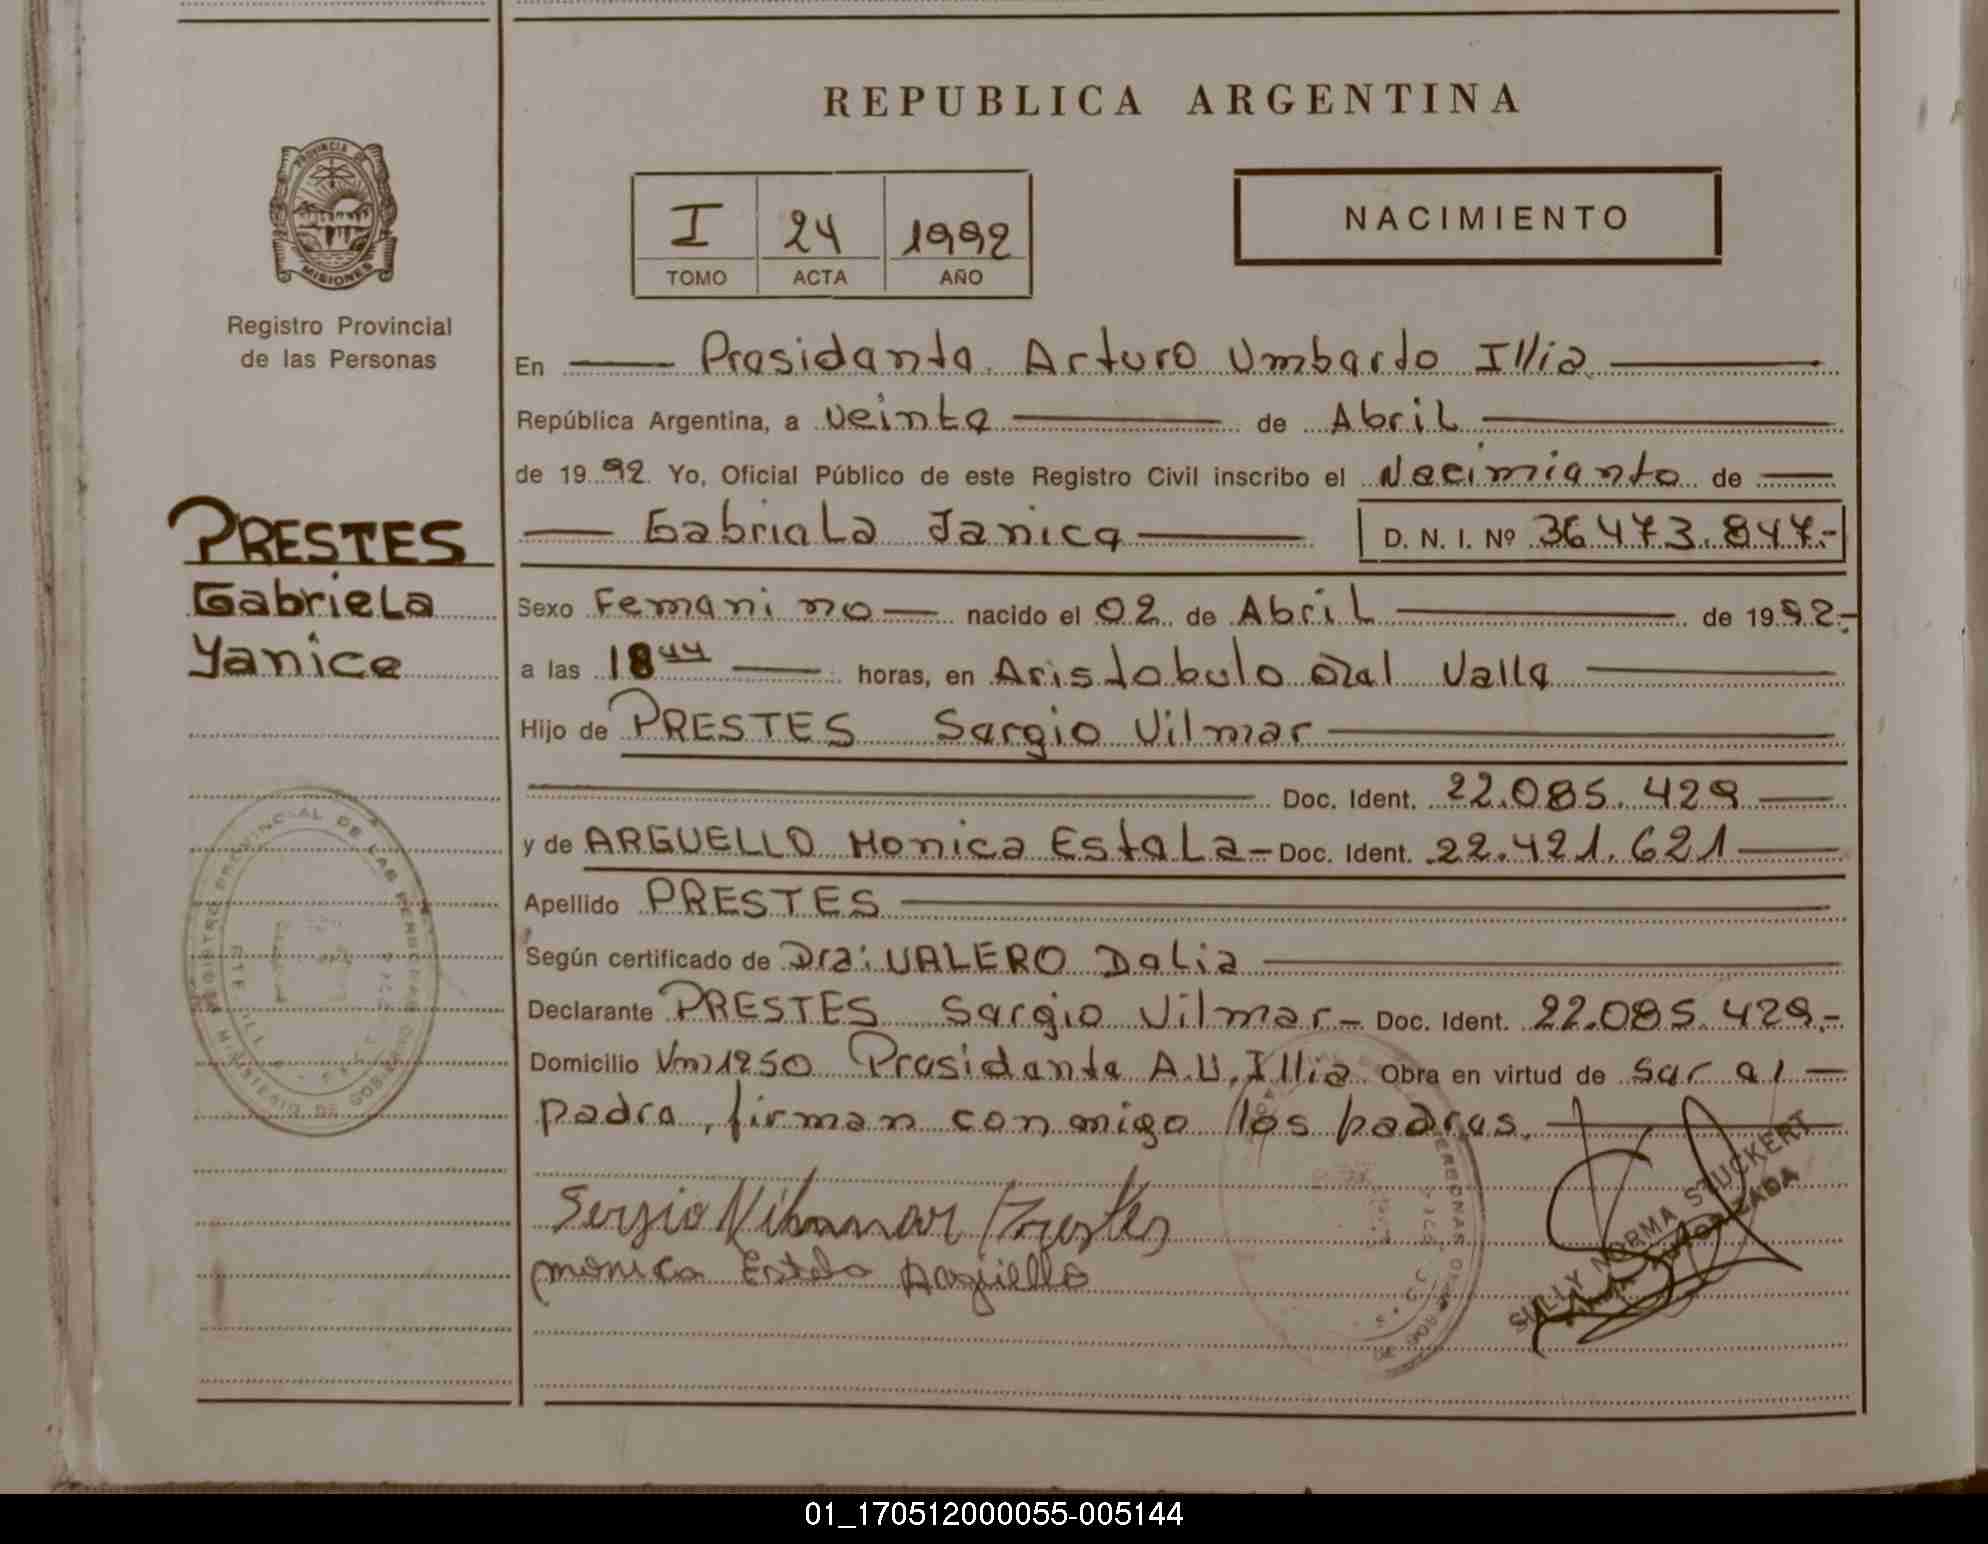 REPUBLICA ARGENTINA
PROVINCIA DE
MISIONES
Registro Provincial
de las Personas
I 24 1992
TOMO ACTA AÑO
NACIMIENTO
PRESTES
Gabriela
Yanice
En Presidente Arturo Umberto Illia
República Argentina, a veinte de Abril
de 1992. Yo, Oficial Público de este Registro Civil inscribo el Nacimiento de
Gabriela Janice D. N. I. Nº 36.473.847.-
Sexo Femenino nacido el 02 de Abril de 1992.-
a las 18 44 horas, en Aristobulo Del Valle
Hijo de PRESTES Sergio Vilmar
Doc. Ident. 22.085.429
y de ARGUELLO Monica Estela - Doc. Ident. 22.421.621
Apellido PRESTES
Según certificado de Dra: VALERO Dalia
Declarante PRESTES Sergio Vilmar - Doc. Ident. 22.085.429.-
Domicilio Presidente A.U. Illia Obra en virtud de ser el
padre, firman conmigo los padres.
Sergio Vilmar Prestes
monica Estela Arguello
SULLY NORMA STUCKERT
AUTORIZADA
REGISTRO PROVINCIAL DE LAS PERSONAS
MINISTERIO DE GOBIERNO
01_170512000055-005144